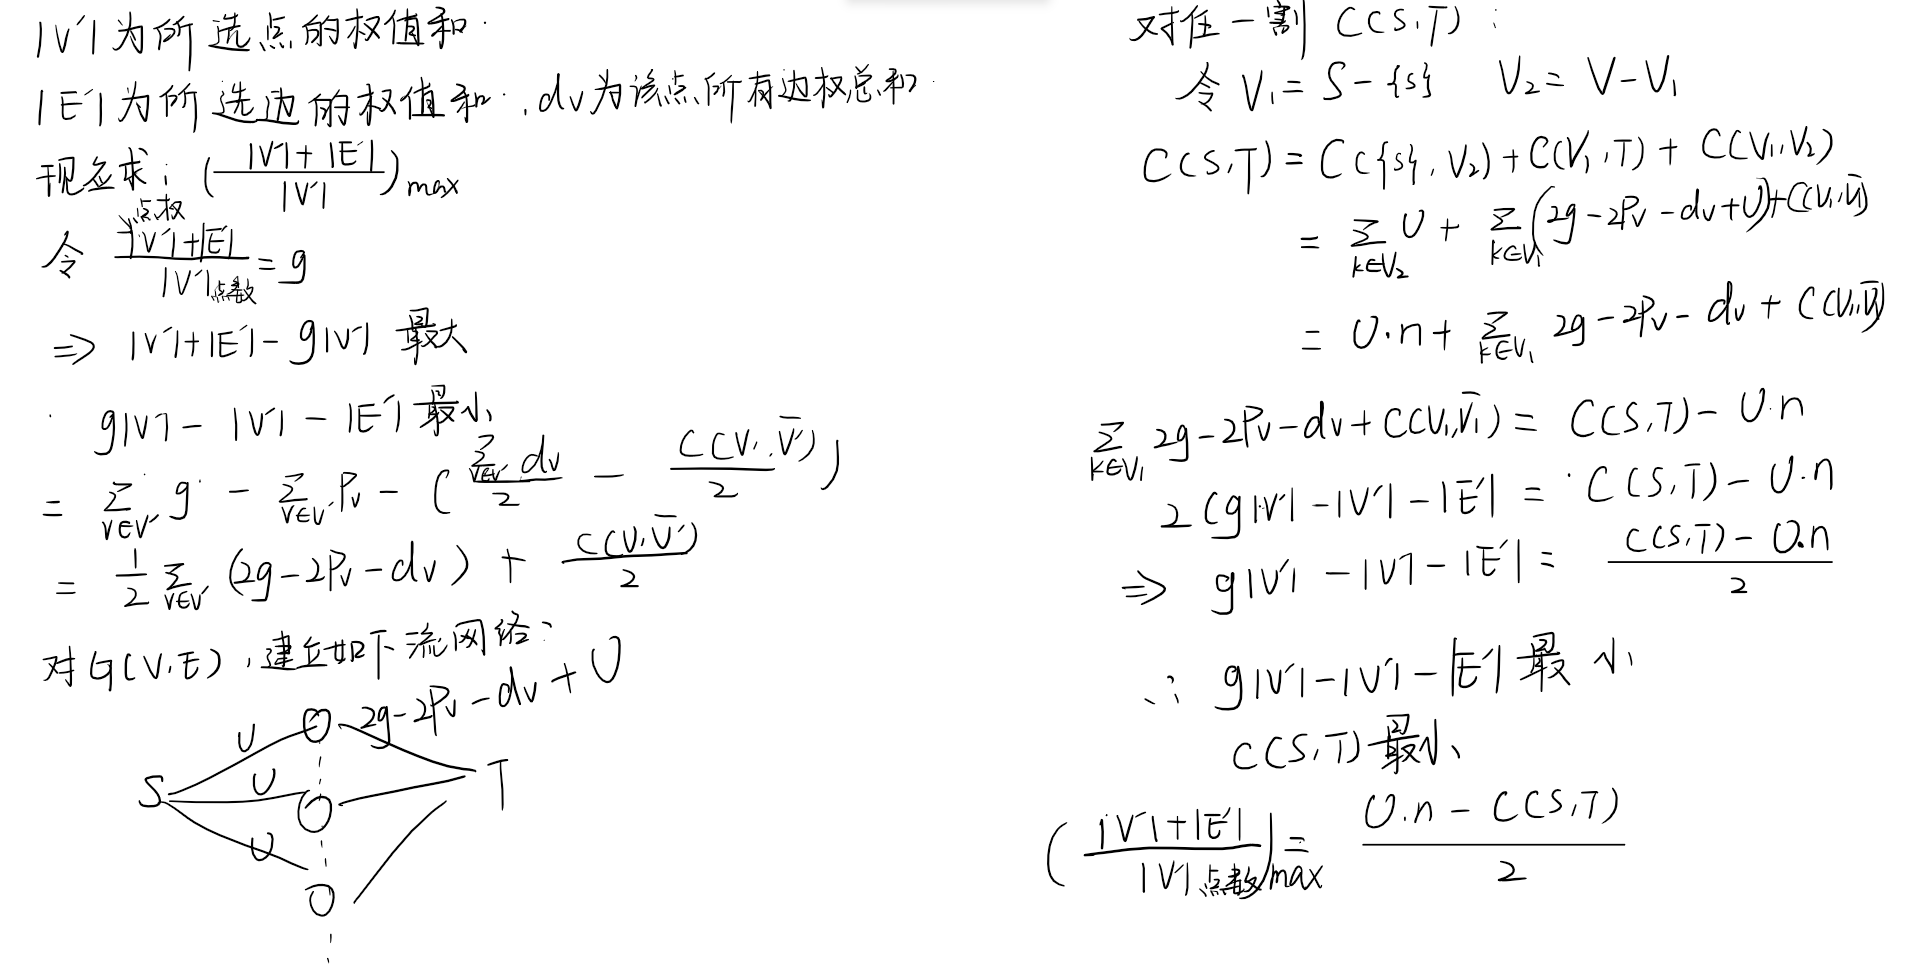 |V'|为所选点的权值和.
|E'|为所选边的权值和.,dv为该点所有边权总和.
现在求:(|V'|+|E'| / |V'|)max
点权
令 |V'|+|E'| / |V'|点数 = g
=> |V'|+|E'|-g|V'| 最大
g|V'| - |V'| - |E'| 最小
= Σ_{v∈V'} g - Σ_{v∈V'} Pv - (Σ_{v∈V'} dv / 2 - C(V',V̄') / 2)
= 1/2 Σ_{v∈V'} (2g-2Pv-dv) + C(V',V̄') / 2
对G(V,E),建立如下流网络:
2g-2Pv-dv+U
U
U
S T
U
对任一割 C(S,T):
令 V₁=S-{s} V₂=V-V₁
C(S,T)=C({s},V₂)+C(V₁,T)+C(V₁,V₂)
= Σ_{k∈V₂} U + Σ_{k∈V₁} (2g-2Pv-dv+U)+C(V₁,V̄₁)
= U·n + Σ_{k∈V₁} 2g-2Pv-dv+C(V₁,V̄₁)
Σ_{k∈V₁} 2g-2Pv-dv+C(V₁,V̄₁) = C(S,T)-U·n
2(g|V'|-|V'|-|E'| = C(S,T)-U·n
=> g|V'|-|V'|-|E'| = C(S,T)-U·n / 2
∴ g|V'|-|V'|-|E'|最小
C(S,T)最小
(|V'|+|E'| / |V'|点数)max = U·n-C(S,T) / 2